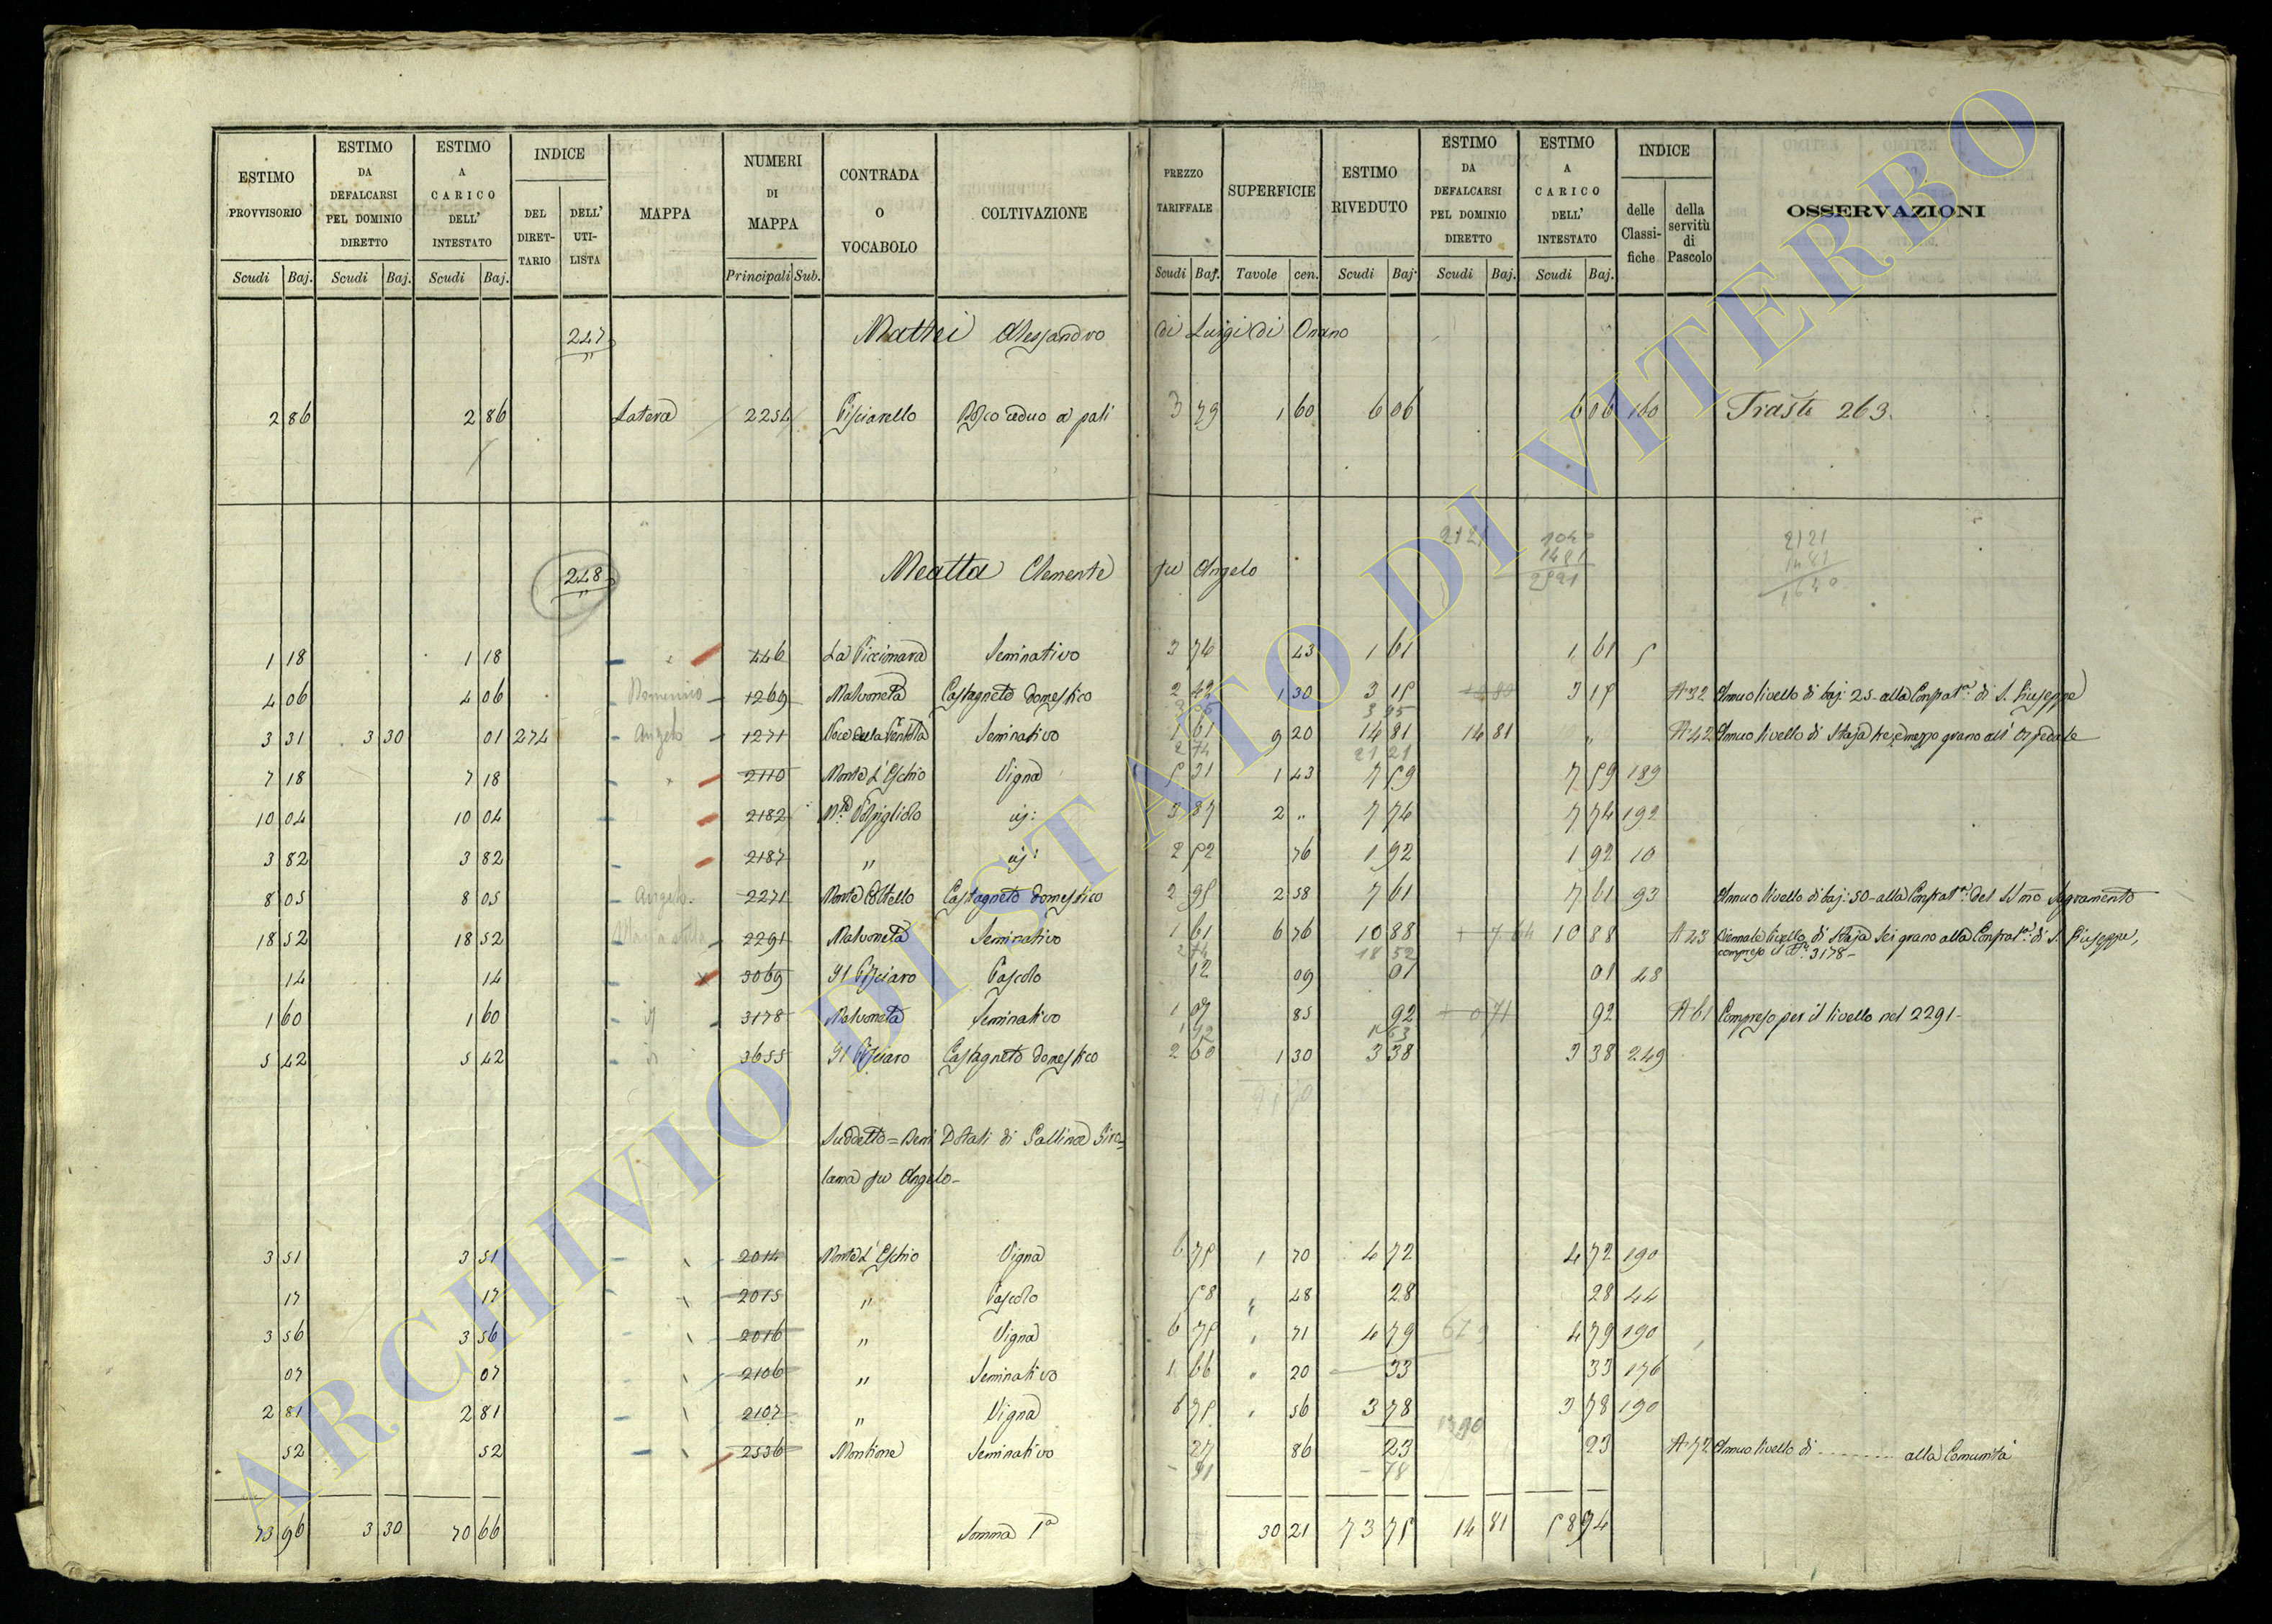 ESTIMO PROVVISORIO Scudi Baj.
ESTIMO DA DEFALCARSI PEL DOMINIO DIRETTO Scudi Baj.
ESTIMO A CARICO DELL' INTESTATO Scudi Baj.
INDICE DEL DIRET-TARIO DELL' UTI-LISTA
MAPPA
NUMERI DI MAPPA Principali Sub.
CONTRADA O VOCABOLO
COLTIVAZIONE
PREZZO TARIFFALE Scudi Baj.
SUPERFICIE Tavole cen.
ESTIMO RIVEDUTO Scudi Baj.
ESTIMO DA DEFALCARSI PEL DOMINIO DIRETTO Scudi Baj.
ESTIMO A CARICO DELL' INTESTATO Scudi Baj.
INDICE delle Classi-fiche della servitù di Pascolo
OSSERVAZIONI
247 Mattei Alessandro di Luigi di Onano
2 86 2 86 Latera 2254 Pisciarello Bosco ceduo a pali 3 79 1 60 6 06 6 06 160 Traste 263
2121 1040 2121
1481 1481
2521 1640
248 Meatta Clemente fu Angelo
1 18 1 18 446 La Piccinara Seminativo 3 74 43 1 61 1 61 5
4 06 4 06 Domenico 1269 Malvoneta Castagneto domestico 2 42 1 30 3 15 3 15 A 32 Annuo livello di baj: 25 alla Confrat.a di S. Giuseppe
3 95
3 31 3 30 01 274 Angelo 1271 Seminativo 1 61 9 20 14 81 14 81 " A 42 Annuo livello di Staja tre, e mezzo grano all' Ospedale
21 21
7 18 7 18 2110 Monte L'Eschio Vigna 5 31 1 43 7 59 7 59 189
10 04 10 04 2182 id: 3 87 2 " 7 74 7 74 192
3 82 3 82 2187 " id: 2 52 76 1 92 1 92 10
8 05 8 05 Angelo 2271 Monte Castello Castagneto domestico 2 95 2 58 7 61 7 61 93 Annuo livello di baj: 50 alla Confrat.a del SSmo Sagramento
18 52 18 52 Maria Stella 2291 Malvoneta Seminativo 1 61 6 76 10 88 7 64 10 88 A 23 Biennale livello di Staja Sei grano alla Confrat.a di S. Giuseppe,
2 74 18 52 compreso il N.o 3178
14 14 3069 Il Pisciaro Pascolo 12 09 01 01 48
1 60 1 60 id 3178 Malvoneta Seminativo 1 09 85 92 0 71 92 A 61 Compreso per il livello nel 2291
1 92 1 63
5 42 5 42 3655 Il Pisciaro Castagneto domestico 2 60 1 30 3 38 3 38 249
Suddetto = Beni Dotali di Gallina Giro-
lama fu Angelo
3 51 3 51 2014 Monte L'Eschio Vigna 6 75 1 70 4 72 4 72 190
17 17 2015 " Pascolo 58 " 48 28 28 44
3 56 3 56 2016 " Vigna 6 75 " 71 4 79 4 79 190
07 07 2106 " Seminativo 1 66 " 20 33 33 176
2 81 2 81 2107 " Vigna 6 75 " 56 3 78 1390 3 78 190
52 52 2536 Montione Seminativo 27 86 23 23 A 72 Annuo livello di ........ alla Comunità
91 78
73 96 3 30 70 66 Somma 1a 30 21 73 75 14 81 58 94
ARCHIVIO DI STATO DI VITERBO